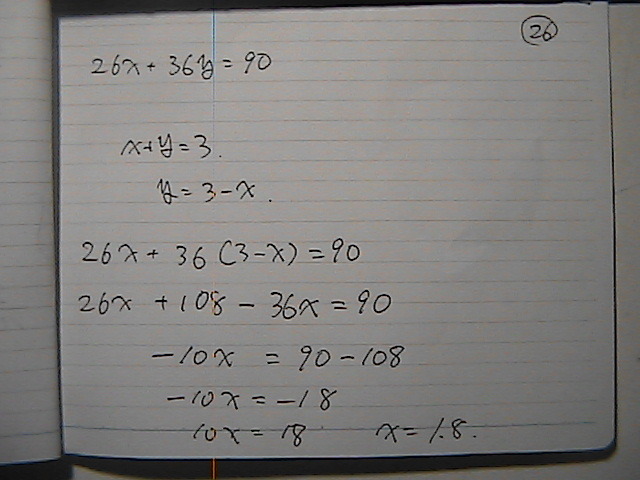 26
26x + 36y = 90
x + y = 3.
y = 3 - x.
26x + 36 (3 - x) = 90
26x + 108 - 36x = 90
-10x = 90 - 108
-10x = -18
10x = 18 x = 1.8.